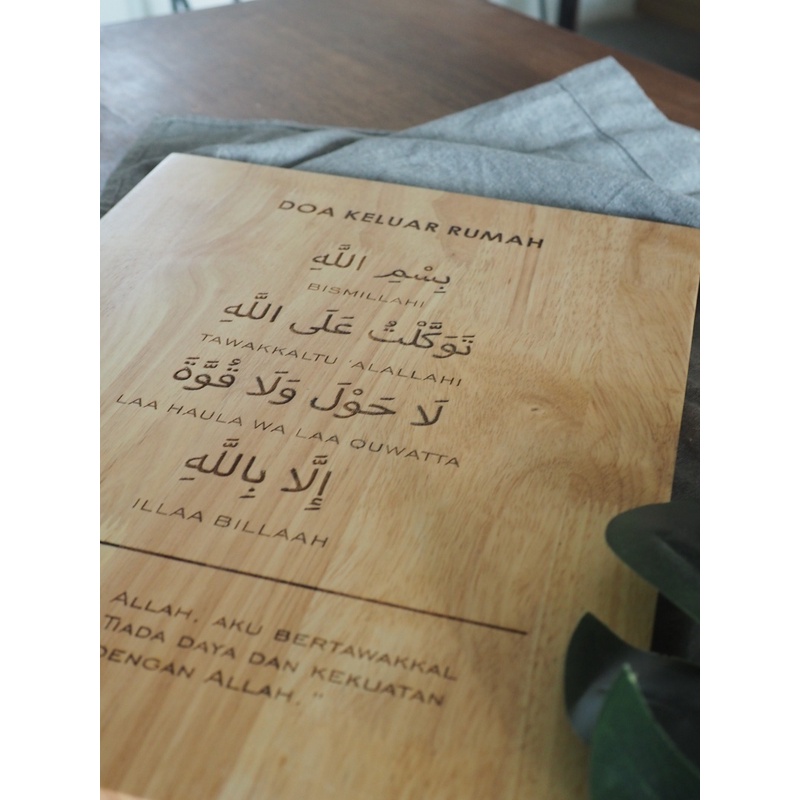 DOA KELUAR RUMAH
بِسْمِ اللَّهِ
BISMILLAHI
تَوَكَّلْتُ عَلَى اللَّهِ
TAWAKKALTU 'ALALLAHI
لَا حَوْلَ وَلَا قُوَّةَ
LAA HAULA WA LAA QUWATTA
إِلَّا بِاللَّهِ
ILLAA BILLAAH
ALLAH, AKU BERTAWAKKAL
TIADA DAYA DAN KEKUATAN
DENGAN ALLAH."